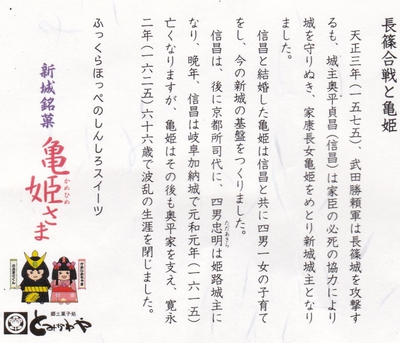 長篠合戦と亀姫
天正三年（一五七五）、武田勝頼軍は長篠城を攻撃す
るも、城主奥平貞昌（信昌）は家臣の必死の協力により
城を守りぬき、家康長女亀姫をめとり新城城主となり
ました。
信昌と結婚した亀姫は信昌と共に四男一女の子育て
をし、今の新城の基盤をつくりました。
信昌は、後に京都所司代に、四男忠明は姫路城主に
ただあきら
なり、晩年、信昌は岐阜加納城で元和元年（一六一五）
亡くなりますが、亀姫はその後も奥平家を支え、寛永
二年（一六二五）六十六歳で波乱の生涯を閉じました。
ふっくらほっぺのしんしろスイーツ
新城銘菓
亀姫さま
かめひめ
郷土菓子処